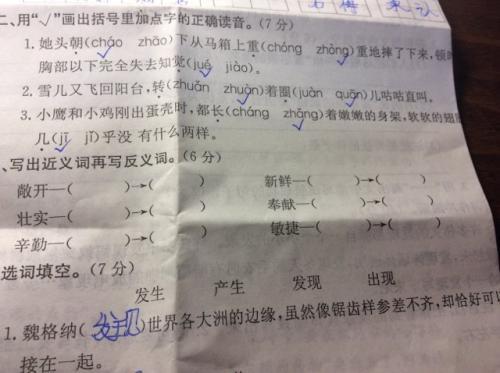 二、用“√”画出括号里加点字的正确读音。(7分)
1. 她头朝(cháo zhāo)下从马箱上重(chóng zhòng)重地摔了下来,顿
胸部以下完全失去知觉(jué jiào)。
2. 雪儿又飞回阳台,转(zhuǎn zhuàn)着圈(juàn quān)儿咕咕直叫。
3. 小鹰和小鸡刚出蛋壳时,都长(cháng zhǎng)着嫩嫩的身架,软软的翅
几(jī jǐ)乎没 有什么两样。
、写出近义词再写反义词。(6分)
敞开—( )→( ) 新鲜—( )→( )
壮实—( )→( ) 奉献—( )→( )
辛勤—( )→( ) 敏捷—( )→( )
选词填空。(7分)
发生 产生 发现 出现
1. 魏格纳(发现)世界各大洲的边缘,虽然像锯齿样参差不齐,却恰好可以
接在一起。